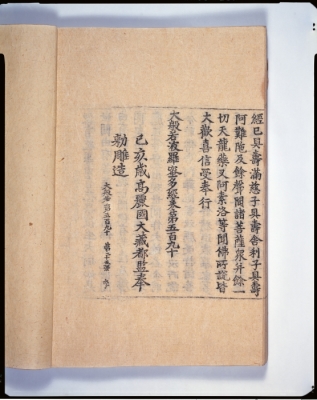 經已具壽滿慈子具壽舍利子具壽
阿難陁及餘聲聞諸菩薩衆并餘一
切天龍藥叉阿素洛等聞佛所說皆
大歡喜信受奉行
大般若波羅蜜多經卷第五百九十
己亥歲高麗國大藏都監奉
勑雕造
大般若 第五百九十